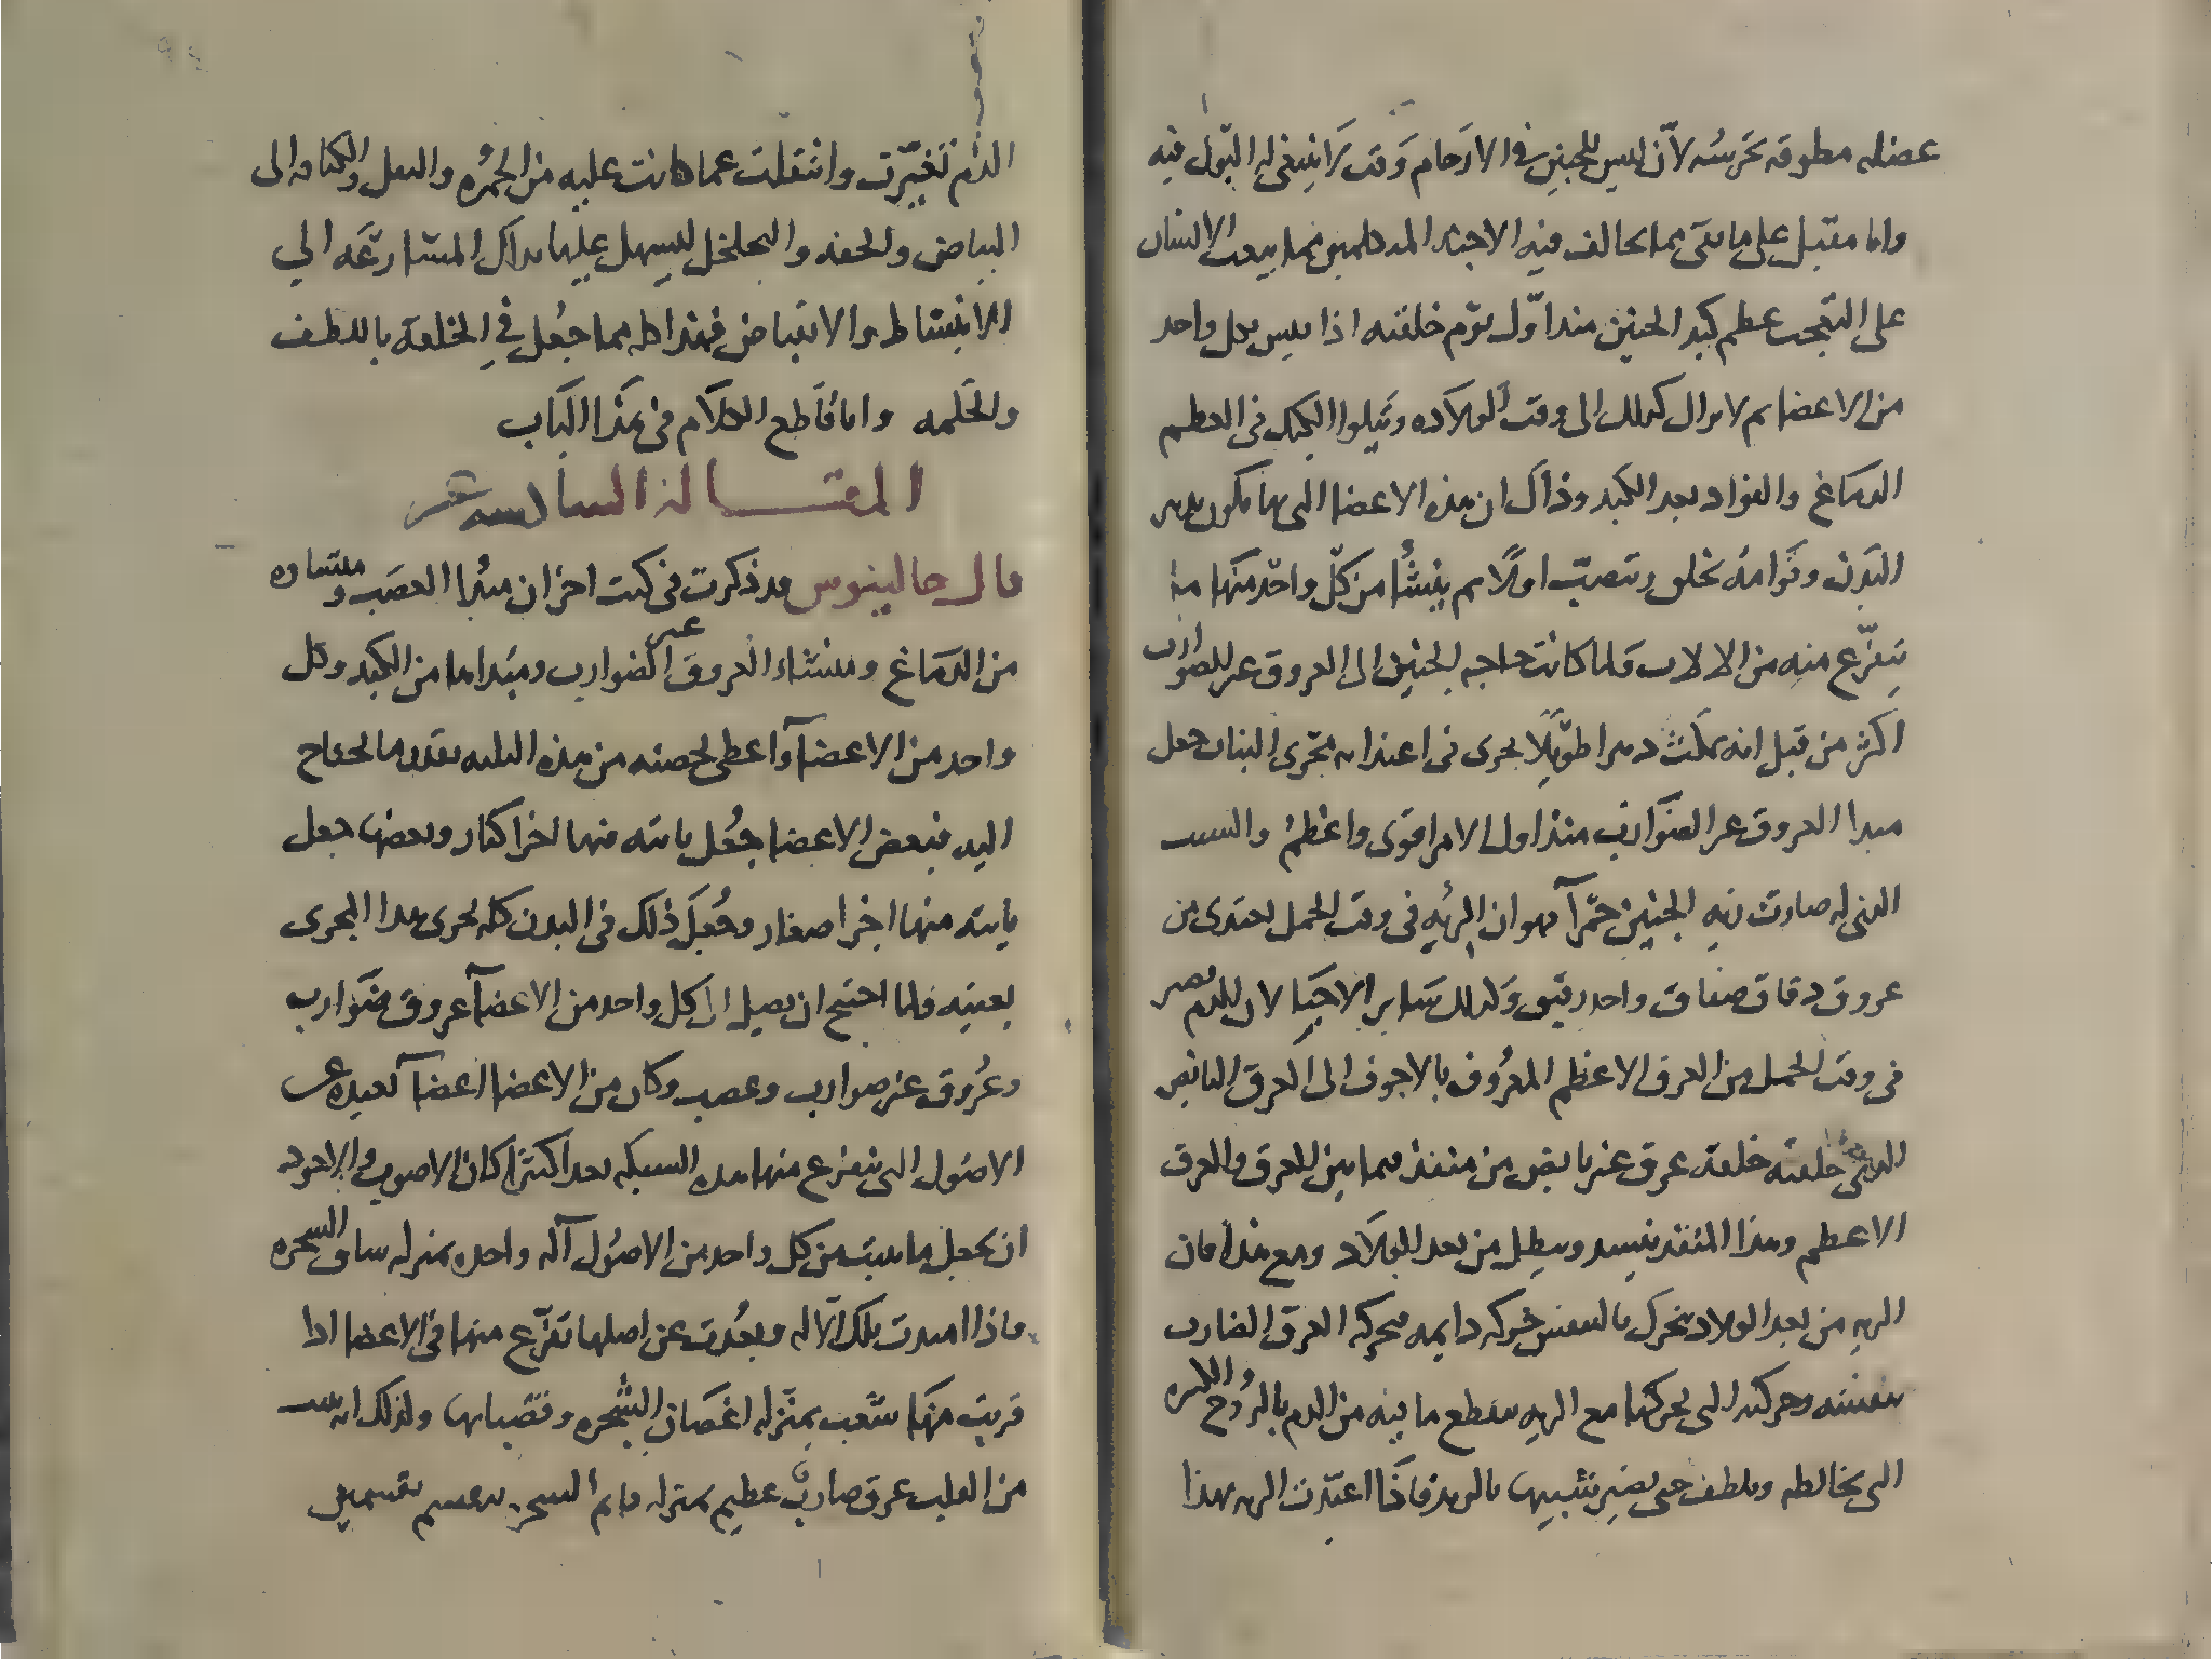 عضله مطوقه تحرسه لاّن ليس للجنين في الارحام وقت لا ينبغي له البّول فيه
وانا مقبل على ما بقى مما يخالف فيه الاجنه المستكملين مما يبعث الانسان
على التعجب عظم كبد الجنين منذ اوّل يوم خلقته اذا قيس بكل واحد
من الاعضا ثم لا يزال كذلك الى وقت الولاده ويتلوا الكبد في العظم
الدماغ والفواد بعد الكبد وذاك ان هذه الاعضا التى بها يكون تدبير
البدن وقوامه تخلق وتنصب اولًا ثم ينشأ من كلّ واحد منها ما
يتفرّع منه من الالات ولما كانت حاجه الجنين الى العروق غير الضوارب
اكثر من قبل انه يمكث دهرا طويلًا يجرى في اغتذائه مجرى النبات جعل
مبدا العروق غير الضوارب منذ اول الامر اقوى واعظم والسبب
الذي له صارت ريه الجنين حمرآ هو ان الريه في وقت الحمل تغتذى من
عروق دقاق صفاق واحد رقيق وكذلك ساير الاحيا لان الدم يصير
في وقت الحمل من العرق الاعظم المعروف بالاجوف الى العرق النابض
الذى خلقته خلقة عرق غير نابض من منفذ فيما بين العرق والعرق
الاعظم وهذا المنفذ ينسد ويبطل من بعد الولاد ومع هذا فان
الريه من بعد الولاد تتحرك بالتنفس حركه دايمه فحركه العرق الضارب
بنفسه وحركته التى يحركها مع الريه تقطع ما فيه من الدم بالروح الكثيره
التى تخالطه وتلطف حتى يصير شبيها بالزبد فاذا اغتذت الريه بهذا
الدم تغيّرت وانتقلت عما كانت عليه من الحُمره والثقل والكثافه الى
البياض والخفه والتخلخل ليسهل عليها بذاك المسارعَه الي
الانبساط والانقباض فهذا كله مما جُعل في الخلقة باللطف
والحكمه وانا قاطع الكلام في هذا الكتاب
المقــالة السادسه عشر
قال جالينوس قد ذكرت في كتب اخر ان مبدا العصَب ومنشاه
من الدماغ ومنشاء العروق الغير ضوارب ومبداها من الكبد وكل
واحد من الاعضآ اعطى لحصته من هذه الثلثه بقدر ما يحتاج
اليه فبعض الاعضا جُعل ياتيه منها اجزا كبار وبعضها جعل
ياتيه منها اجزا صغار وجُعِلَ ذلك في البدن كله يجرى هذا المجرى
بعينه فلما احتيج ان يصل الى كل واحد من الاعضآ عروق ضوارب
وعُروق غير ضوارب وعصب وكان من الاعضا اعضآ بعيده عن
الاصُول التى يتفرع منها هذه الشبكه بعدا كثيرًا كان الاصوب والاجود
ان يجعل ما ينبت من كل واحد من الاصُول آله واحده بمنزله ساق الشجره
فاذا امتدت تلك الآله وبعُدت عن اصلها تفرّع منها في الاعضا اذا
قربت منها شعب بمنزله اغصان الشجره وقضبانها ولذلك انبت
من القلب عرق ضاربٌ عظيم بمنزله قايم الشجره ينقسم بقسمين